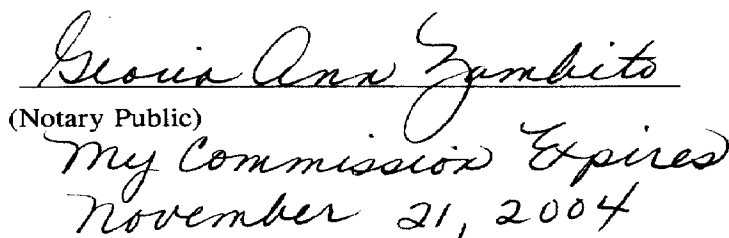 Gloria Ann Zambito
(Notary Public)
My Commission Expires
November 21, 2004